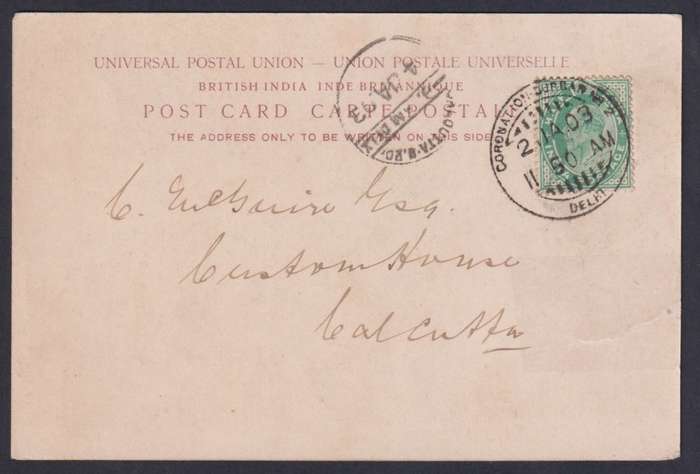 UNIVERSAL POSTAL UNION — UNION POSTALE UNIVERSELLE
BRITISH INDIA INDE BRITANNIQUE
POST CARD CARTE POSTALE
THE ADDRESS ONLY TO BE WRITTEN ON THIS SIDE
CORONATION-DURBAR No 2
2 JA.03
11 50 AM
DELHI
CALCUTTA
4 JA
03
AM
C. McGuire Esq.
Custom House
Calcutta